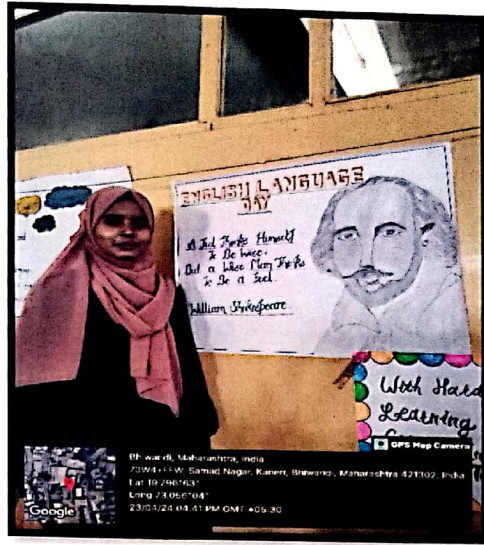 ENGLISH LANGUAGE
DAY
A Fool Thinks Himself
To Be Wise.
But a Wise Man Thinks
To Be a Fool.
William Shakespeare
With Hard
Learning
GPS Map Camera
Bhiwandi, Maharashtra, India
Samad Nagar, Kaneri, Bhiwandi, Maharashtra 421302, India
Lat
Long
23/04/24 04:41 PM GMT +05:30
Google